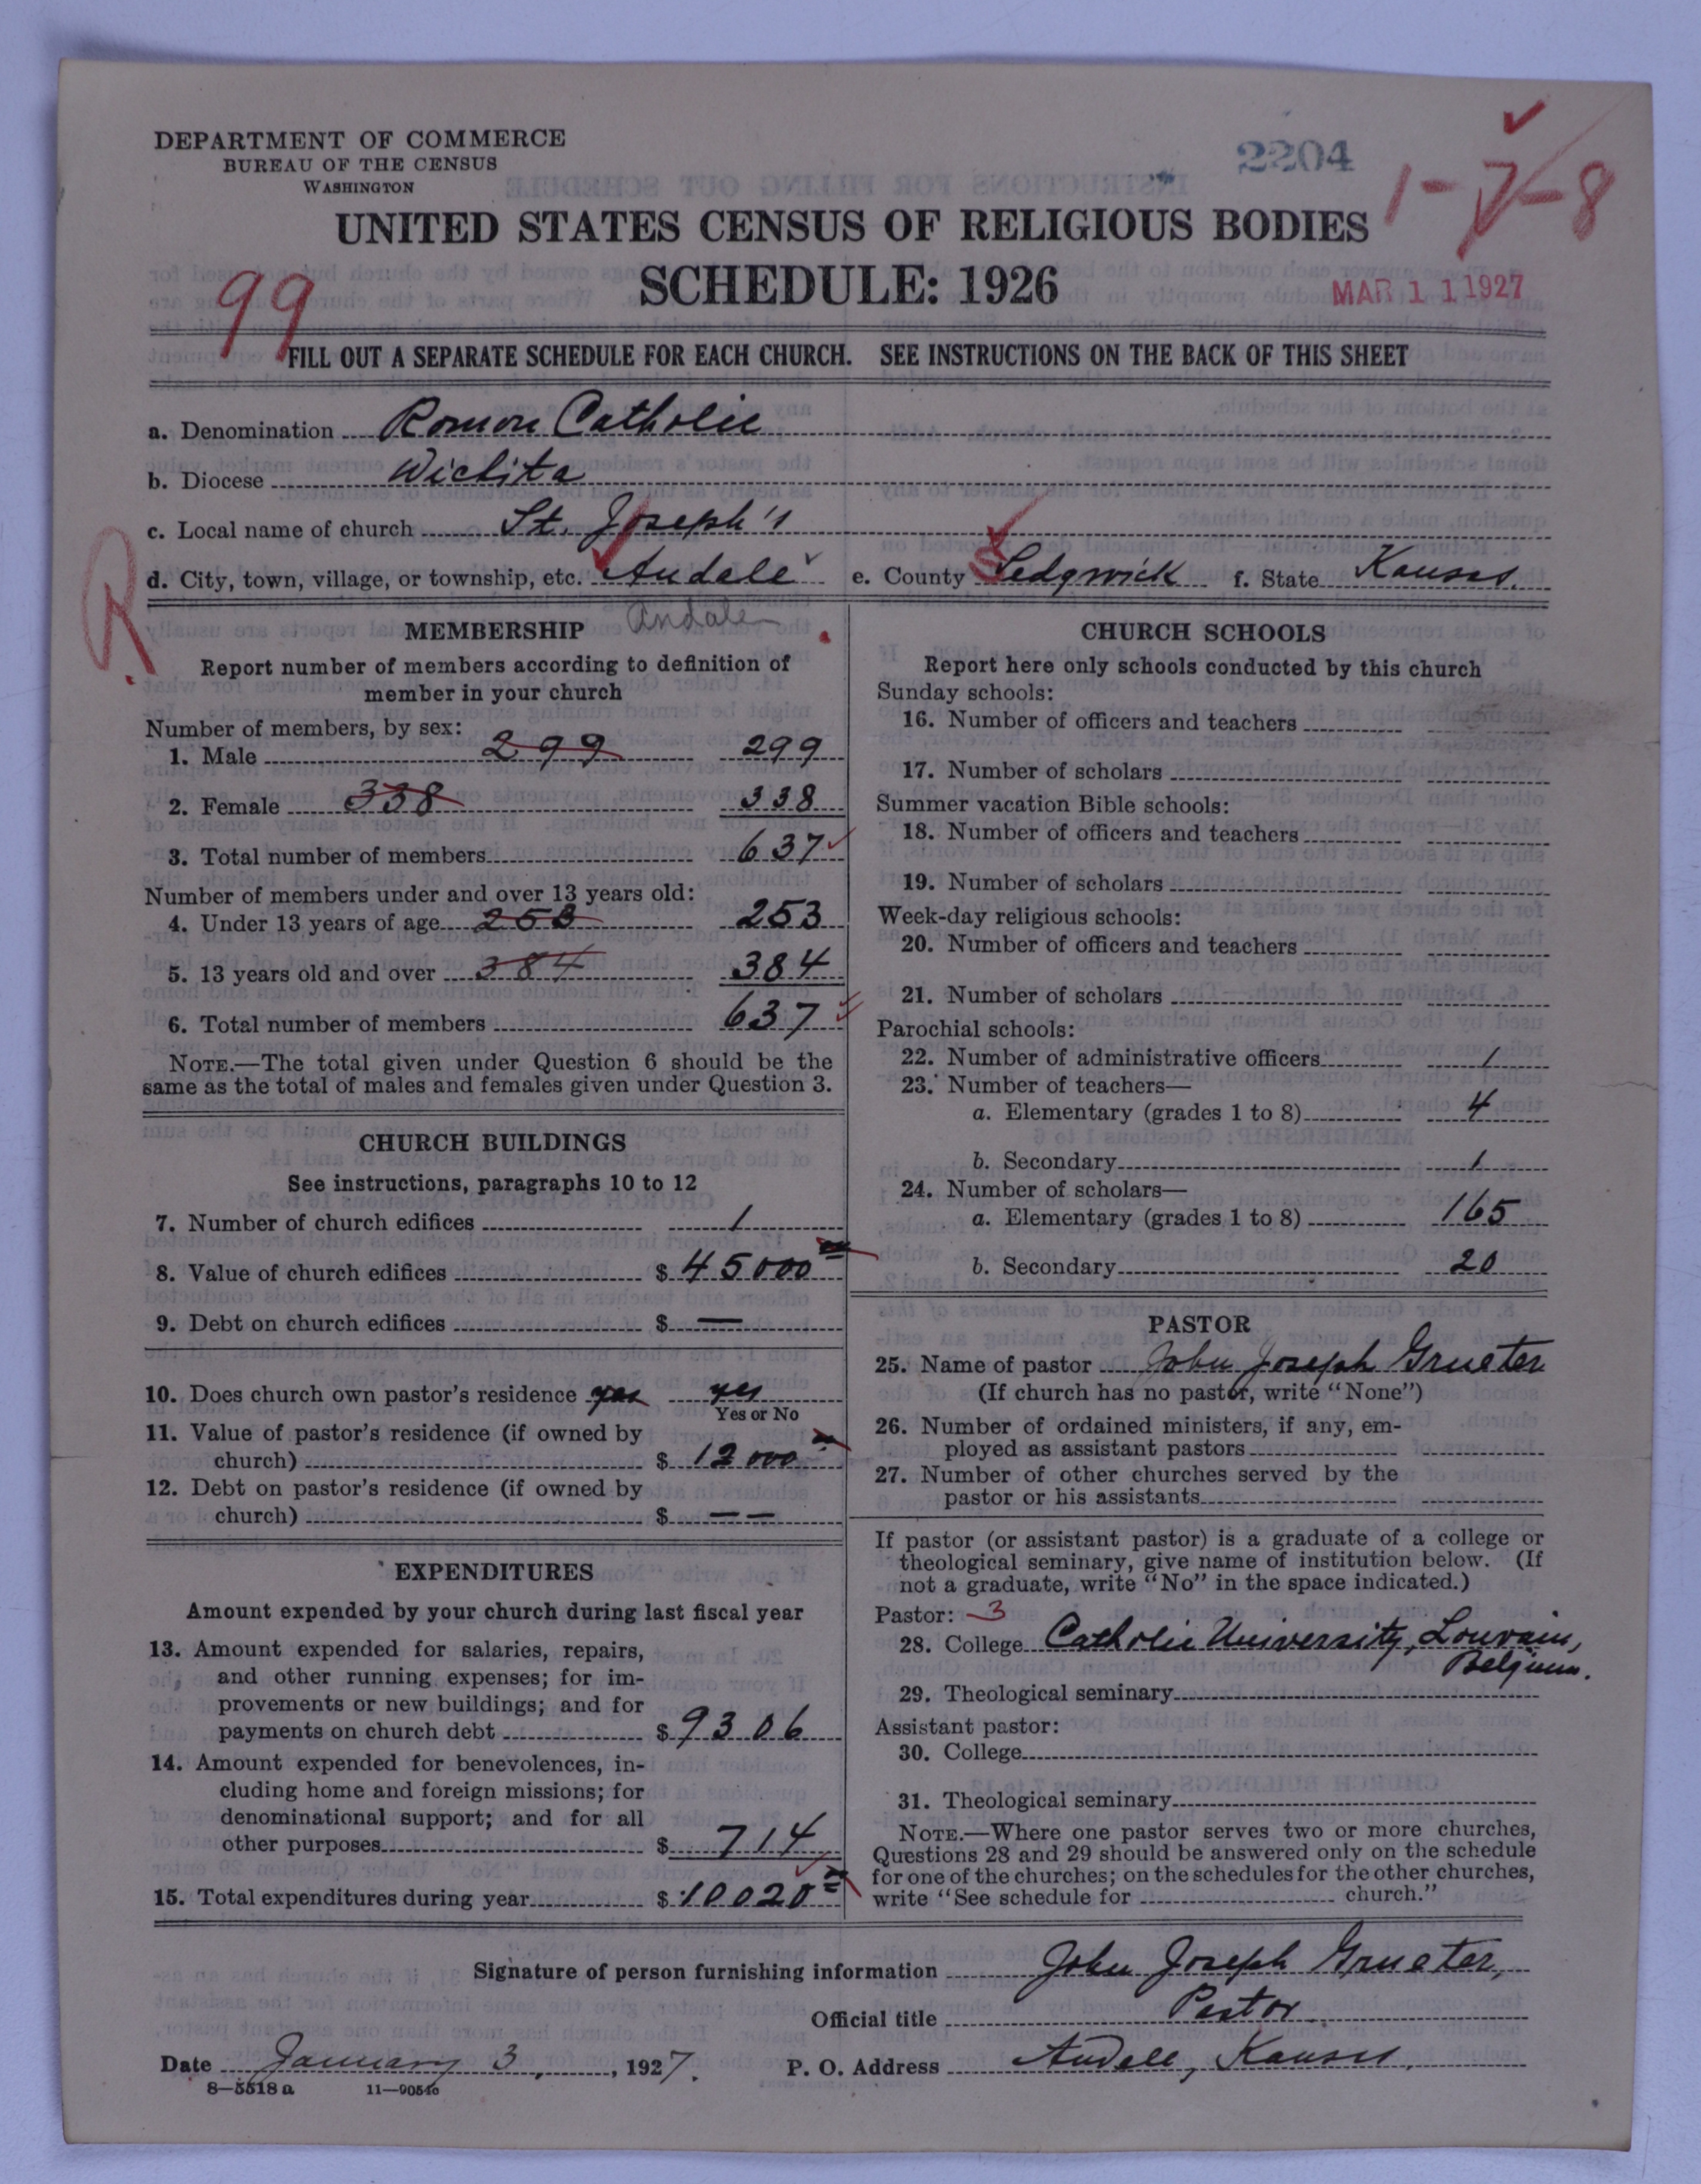 DEPARTMENT OF COMMERCE
BUREAU OF THE CENSUS
WASHINGTON
2204
1-7-8
UNITED STATES CENSUS OF RELIGIOUS BODIES
SCHEDULE: 1926
99
MAR 11 1927
FILL OUT A SEPARATE SCHEDULE FOR EACH CHURCH. SEE INSTRUCTIONS ON THE BACK OF THIS SHEET
a. Denomination Roman Catholic
b. Diocese Wichita
c. Local name of church St. Joseph's
R
d. City, town, village, or township, etc. Andale e. County Sedgwick f. State Kansas.
Andale
MEMBERSHIP
Report number of members according to definition of
member in your church
Number of members, by sex:
1. Male 299 299
2. Female 338 338
3. Total number of members 637
Number of members under and over 13 years old:
4. Under 13 years of age 253 253
5. 13 years old and over 384 384
6. Total number of members 637
NOTE.—The total given under Question 6 should be the
same as the total of males and females given under Question 3.
CHURCH BUILDINGS
See instructions, paragraphs 10 to 12
7. Number of church edifices 1
8. Value of church edifices $ 45000
9. Debt on church edifices $ —
10. Does church own pastor's residence yes yes
Yes or No
11. Value of pastor's residence (if owned by
church) $ 12000
12. Debt on pastor's residence (if owned by
church) $ — —
EXPENDITURES
Amount expended by your church during last fiscal year
13. Amount expended for salaries, repairs,
and other running expenses; for im-
provements or new buildings; and for
payments on church debt $ 9306
14. Amount expended for benevolences, in-
cluding home and foreign missions; for
denominational support; and for all
other purposes $ 714
15. Total expenditures during year $ 10020
CHURCH SCHOOLS
Report here only schools conducted by this church
Sunday schools:
16. Number of officers and teachers
17. Number of scholars
Summer vacation Bible schools:
18. Number of officers and teachers
19. Number of scholars
Week-day religious schools:
20. Number of officers and teachers
21. Number of scholars
Parochial schools:
22. Number of administrative officers 1
23. Number of teachers—
a. Elementary (grades 1 to 8) 4
b. Secondary 1
24. Number of scholars—
a. Elementary (grades 1 to 8) 165
b. Secondary 20
PASTOR
25. Name of pastor John Joseph Grueter
(If church has no pastor, write "None")
26. Number of ordained ministers, if any, em-
ployed as assistant pastors
27. Number of other churches served by the
pastor or his assistants
If pastor (or assistant pastor) is a graduate of a college or
theological seminary, give name of institution below. (If
not a graduate, write "No" in the space indicated.)
Pastor: 3
28. College Catholic University, Louvain,
Belgium.
29. Theological seminary
Assistant pastor:
30. College
31. Theological seminary
NOTE.—Where one pastor serves two or more churches,
Questions 28 and 29 should be answered only on the schedule
for one of the churches; on the schedules for the other churches,
write "See schedule for church."
Signature of person furnishing information John Joseph Grueter,
Official title Pastor
Date January 3, 1927. P. O. Address Andale, Kansas.
8—5518 a 11—9054c